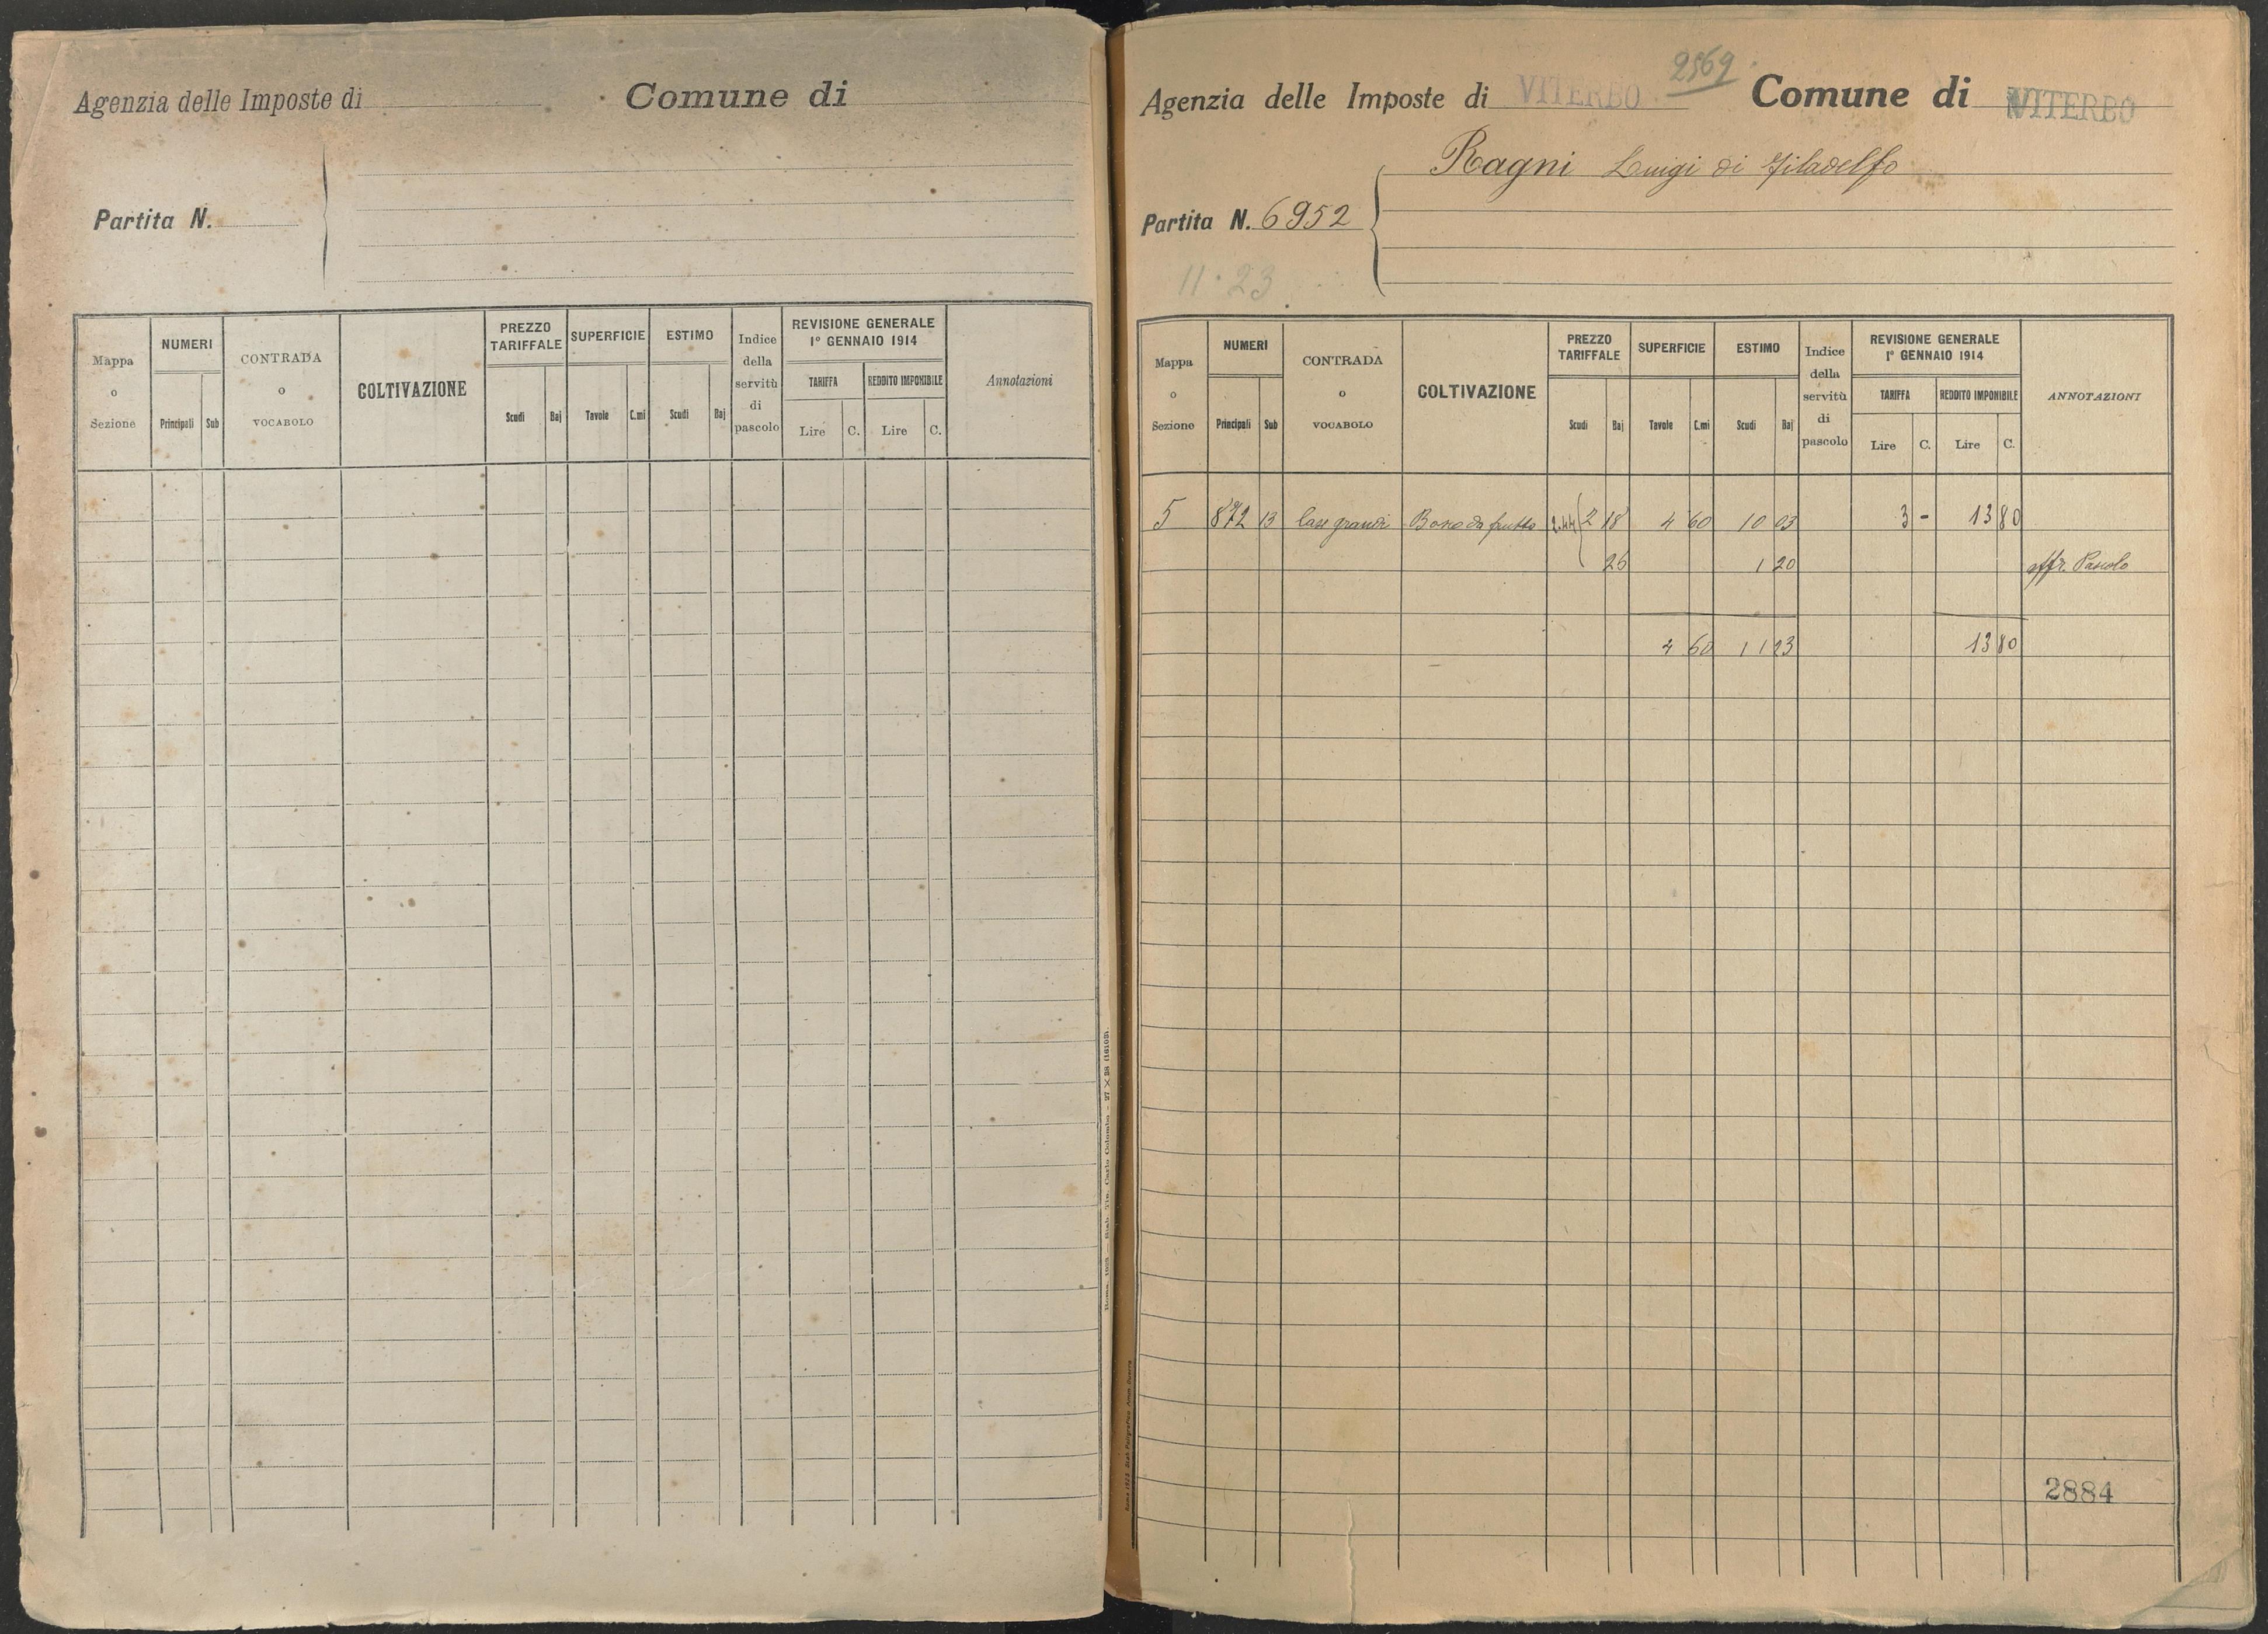 Agenzia delle Imposte di
Comune di
Partita N.
Mappa o Sezione
NUMERI
Principali Sub
CONTRADA o VOCABOLO
COLTIVAZIONE
PREZZO TARIFFALE
Scudi Baj
SUPERFICIE
Tavole C.mi
ESTIMO
Scudi Baj
Indice della servitù di pascolo
REVISIONE GENERALE
1° GENNAIO 1914
TARIFFA REDDITO IMPONIBILE
Lire C. Lire C.
Annotazioni
2569
Agenzia delle Imposte di VITERBO Comune di VITERBO
Ragni Luigi di Filadelfo
Partita N. 6952
11.23
Mappa o Sezione
NUMERI
Principali Sub
CONTRADA o VOCABOLO
COLTIVAZIONE
PREZZO TARIFFALE
Scudi Baj
SUPERFICIE
Tavole C.mi
ESTIMO
Scudi Baj
Indice della servitù di pascolo
REVISIONE GENERALE
1° GENNAIO 1914
TARIFFA REDDITO IMPONIBILE
Lire C. Lire C.
ANNOTAZIONI
5 872 13 Case grandi Bosco da frutto 2.44 2 18 4 60 10 03 3 - 13 80
26 1 20 affr. Pascolo
4 60 11 23 13 80
2884